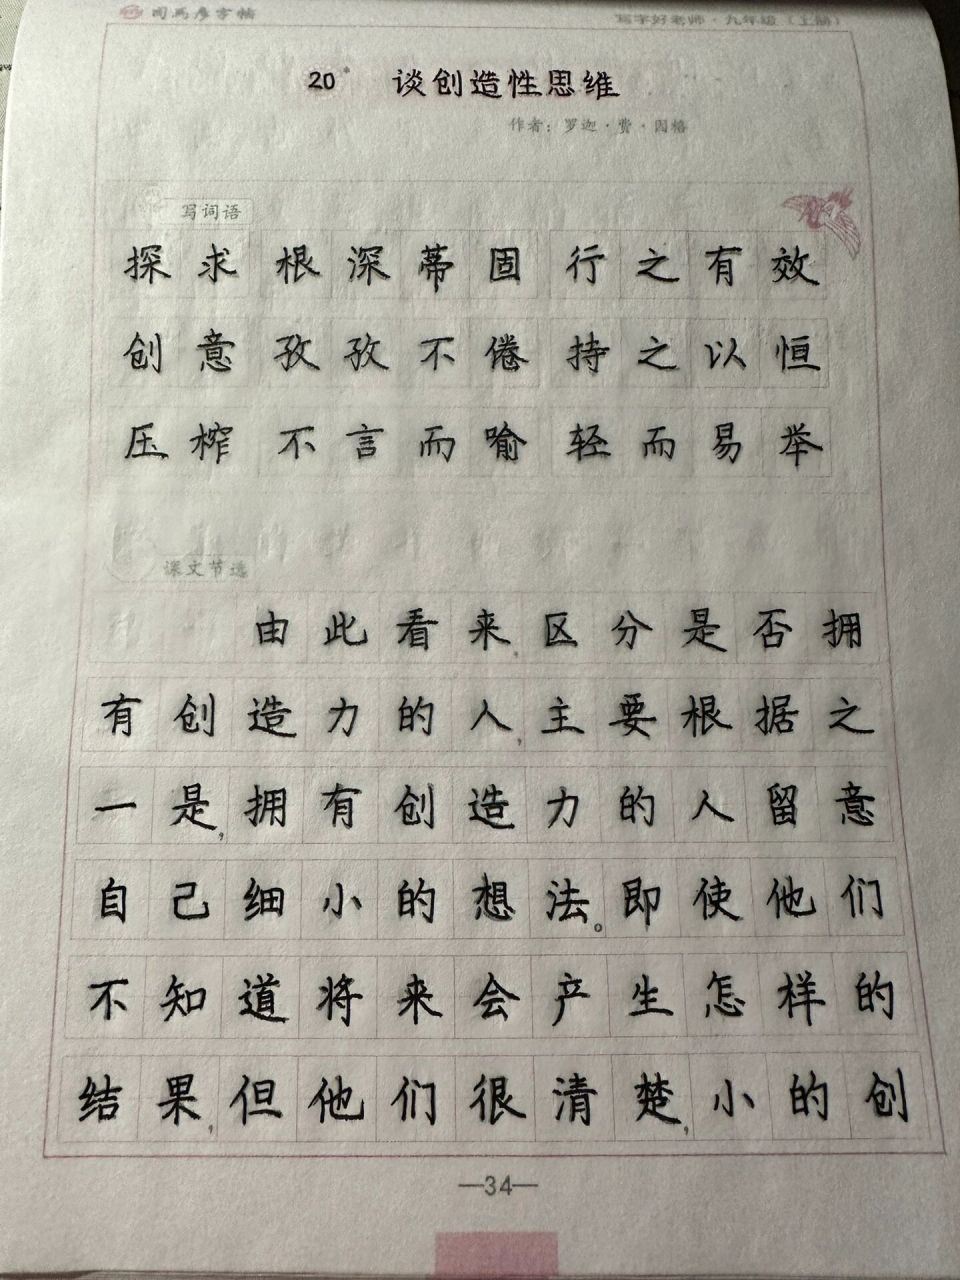 司马彦字帖 写字好老师·九年级（上册）
20* 谈创造性思维
作者：罗迦·费·因格
写词语
探求 根深蒂固 行之有效
创意 孜孜不倦 持之以恒
压榨 不言而喻 轻而易举
课文节选
由此看来,区分是否拥
有创造力的人,主要根据之
一是,拥有创造力的人留意
自己细小的想法。即使他们
不知道将来会产生怎样的
结果,但他们很清楚,小的创
—34—